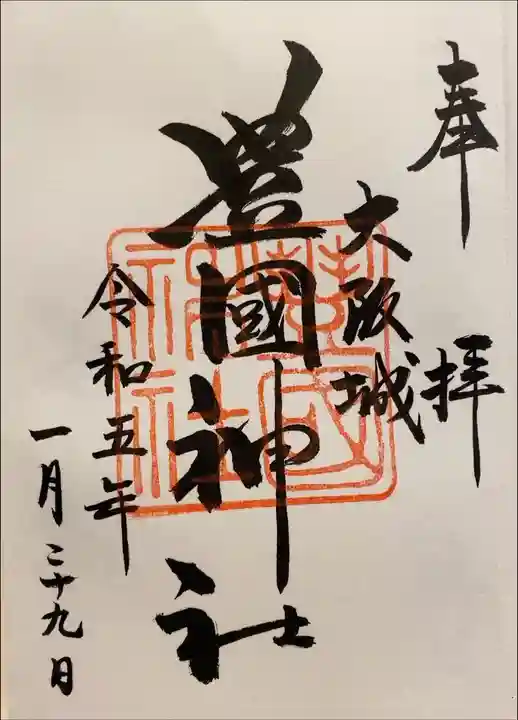 奉拝
大阪城
豊國神社
令和五年
一月二十九日
豊國神社